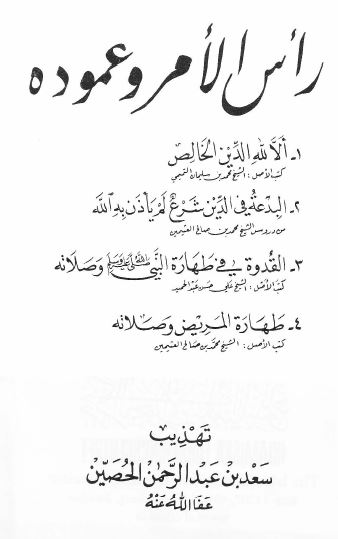 رأس الأمر وعموده
١ـ ألا لله الدين الخالص
كتب الأصل : الشيخ محمد بن سليمان التميمي
٢ـ البدعة في الدين شرع لم يأذن به الله
من دروس الشيخ محمد بن صالح العثيمين
٣ـ القدوة في طهارة النبي ﷺ وصلاته
كتب الأصل : الشيخ علي حسن عبد الحميد
٤ـ طهارة المريض وصلاته
كتب الأصل : الشيخ محمد بن صالح العثيمين
تهذيب
سعد بن عبد الرحمن الحصين
عفا الله عنه